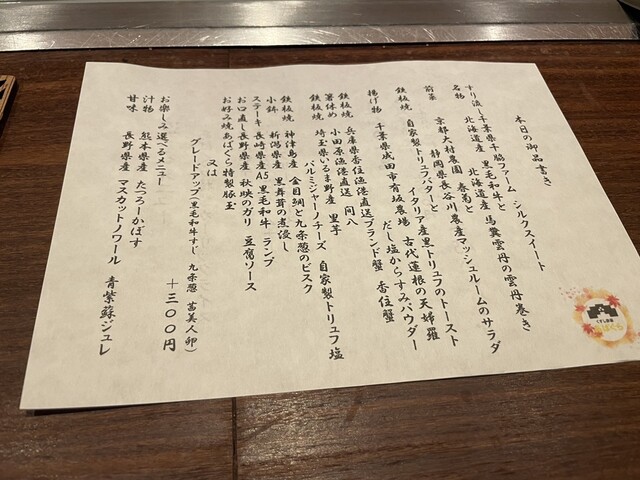 本日の御品書き
すり流し 千葉県千脇ファーム シルクスイート
名物 北海道産 黒毛和牛と
北海道産 馬糞雲丹の雲丹巻き
前菜 京都大村農園 春菊と
静岡県長谷川農産マッシュルームのサラダ
鉄板焼 自家製トリュフバターと
イタリア産黒トリュフのトースト
揚げ物 千葉県成田市有坂農場 古代蓮根の天婦羅
だし塩からすみパウダー
鉄板焼 兵庫県香住漁港直送ブランド蟹 香住蟹
鉄板焼 小田原漁港直送 間八
箸休め 埼玉県いるま野産 里芋
パルミジャーノチーズ 自家製トリュフ塩
鉄板焼 神津島産 金目鯛と九条葱のビスク
小鉢 新潟県産 黒舞茸の煮浸し
ステーキ 長崎県産A5黒毛和牛 ランプ
お口直し 長野県産 秋映のガリ 豆腐ソース
お好み焼 あばぐら特製豚玉
又は
グレードアップ(黒毛和牛すじ 九条葱 茜美人卵)
+三〇〇円
お楽しみ 選べるメニュー
汁物 熊本県産 たつろーかぼす
甘味 長野県産 マスカットノワール 青紫蘇ジュレ